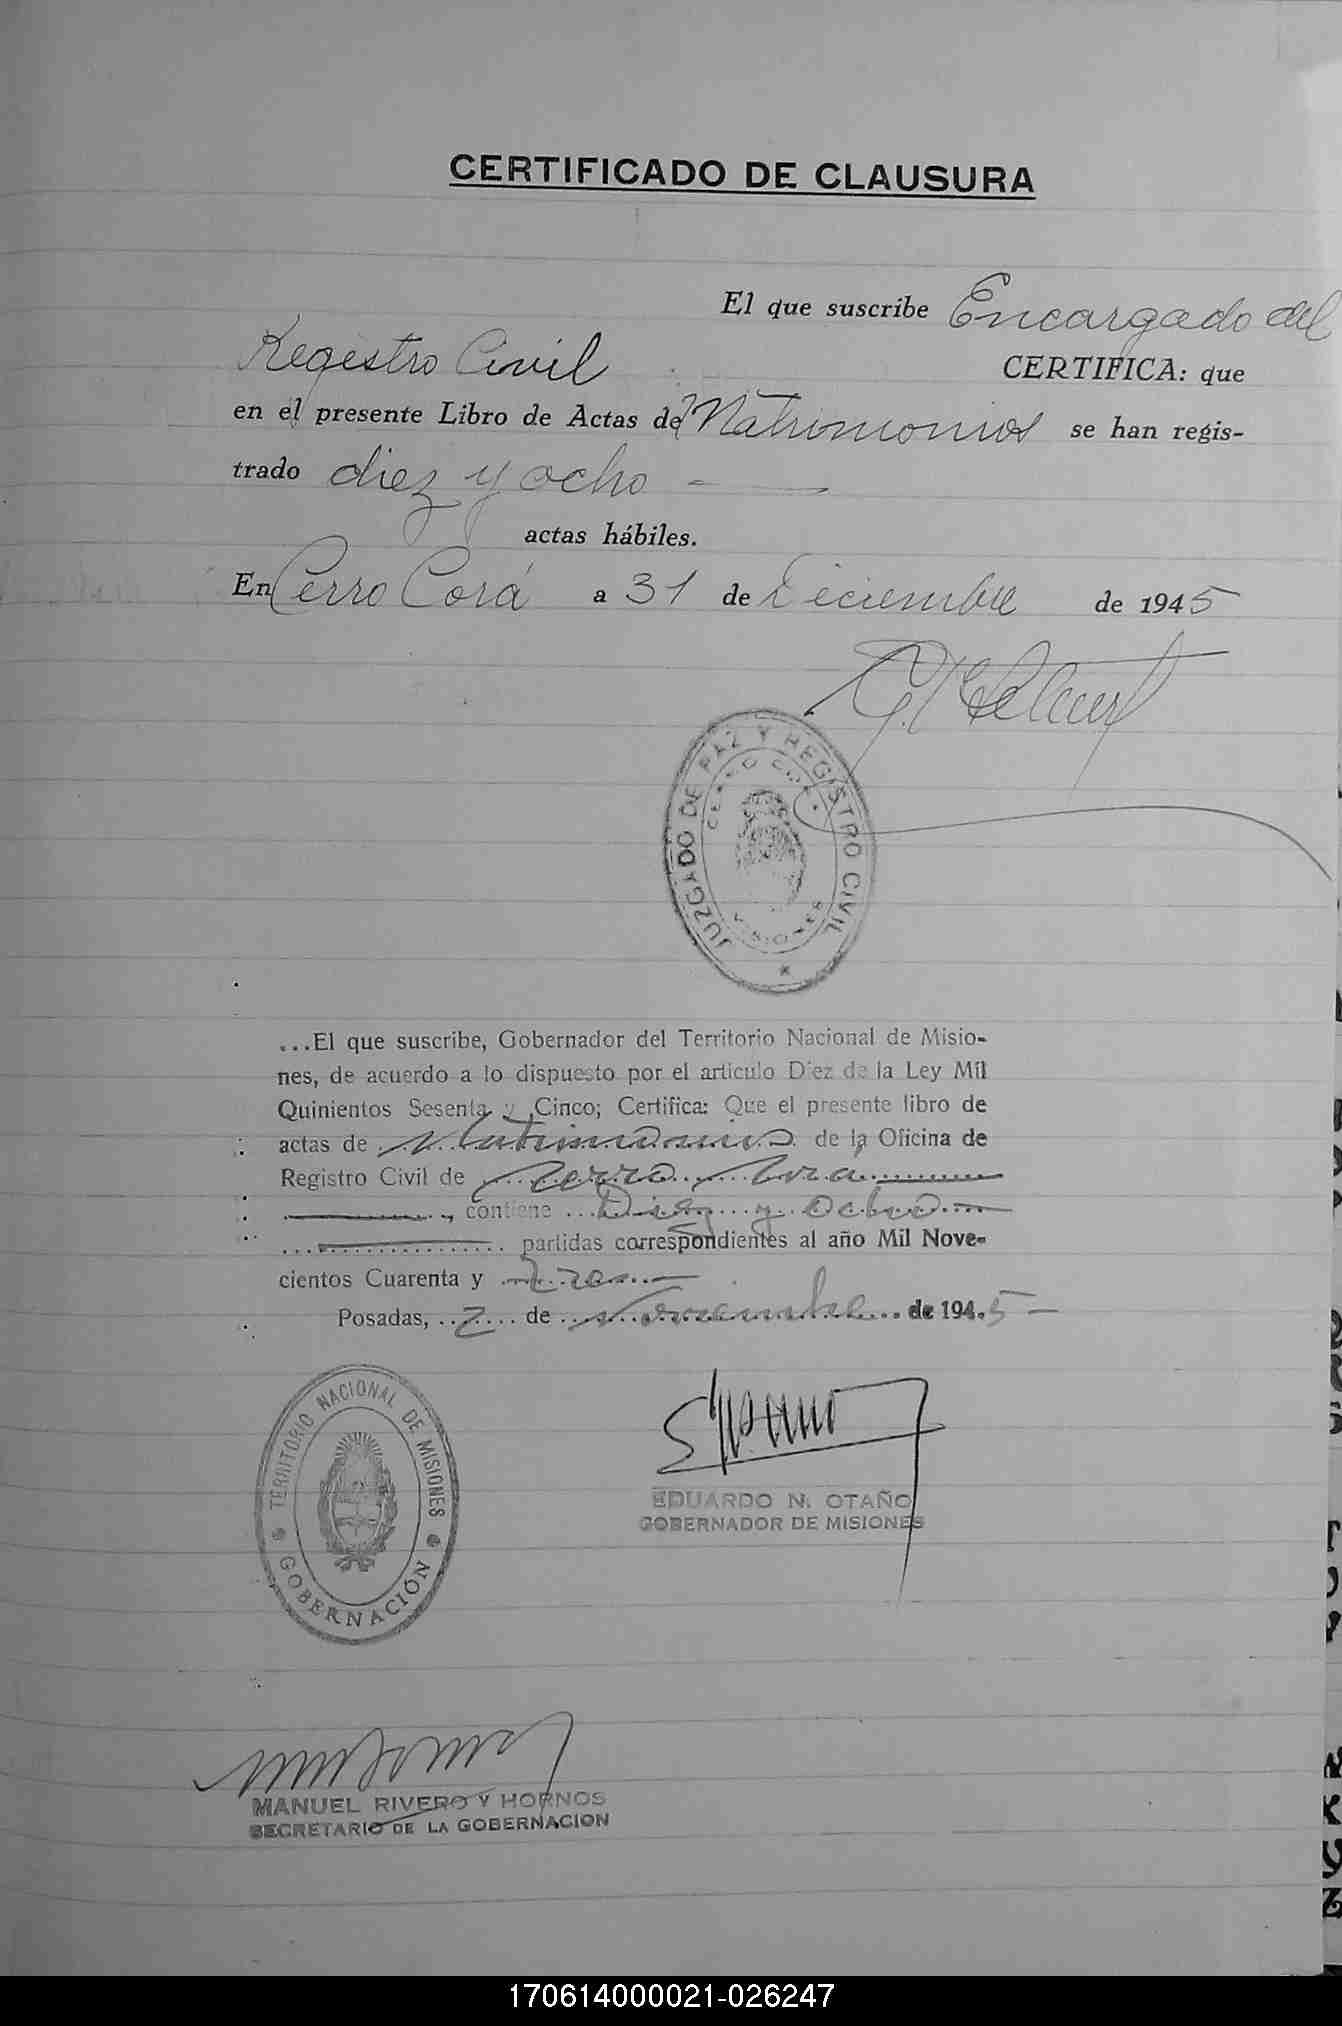 CERTIFICADO DE CLAUSURA
El que suscribe Encargado del
Registro Civil CERTIFICA: que
en el presente Libro de Actas de Matrimonios se han regis-
trado diez y ocho - —
actas hábiles.
En Cerro Corá a 31 de Diciembre de 1945
JUZGADO DE PAZ Y REGISTRO CIVIL
CERRO CORÁ
MISIONES
...El que suscribe, Gobernador del Territorio Nacional de Misio-
nes, de acuerdo a lo dispuesto por el articulo Diez de la Ley Mil
Quinientos Sesenta y Cinco; Certifica: Que el presente libro de
actas de Matrimonios de la Oficina de
Registro Civil de Cerro Cora
contiene Diez y Ocho
partidas correspondientes al año Mil Nove-
cientos Cuarenta y
Posadas, 2 de Noviembre de 1945
TERRITORIO NACIONAL DE MISIONES
GOBERNACIÓN
EDUARDO N. OTAÑO
GOBERNADOR DE MISIONES
MANUEL RIVERO Y HORNOS
SECRETARIO DE LA GOBERNACION
170614000021-026247